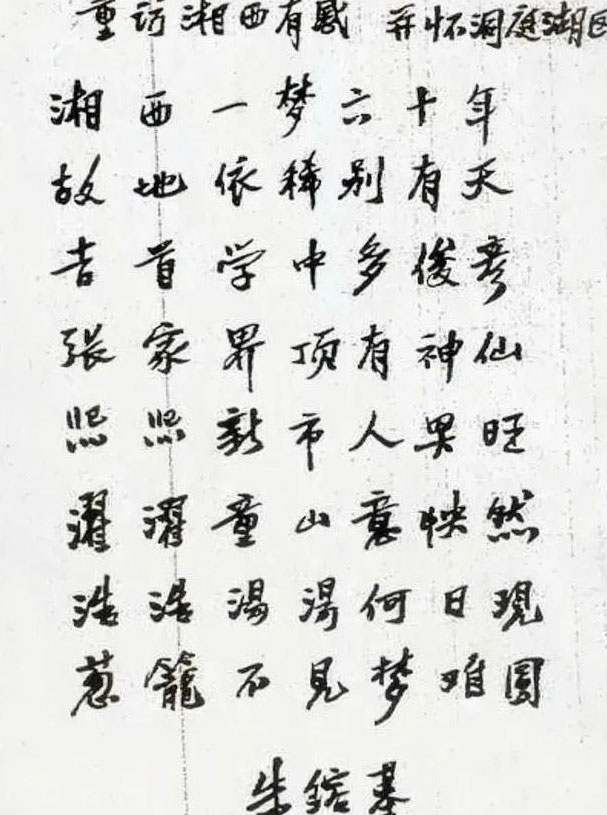 重访湘西有感 并怀洞庭湖区
湘西一梦六十年
故地依稀别有天
吉首学中多俊彦
张家界顶有神仙
熙熙新市人兴旺
濯濯童山意怏然
浩浩湯湯何日現
葱籠不见梦难圆
朱镕基